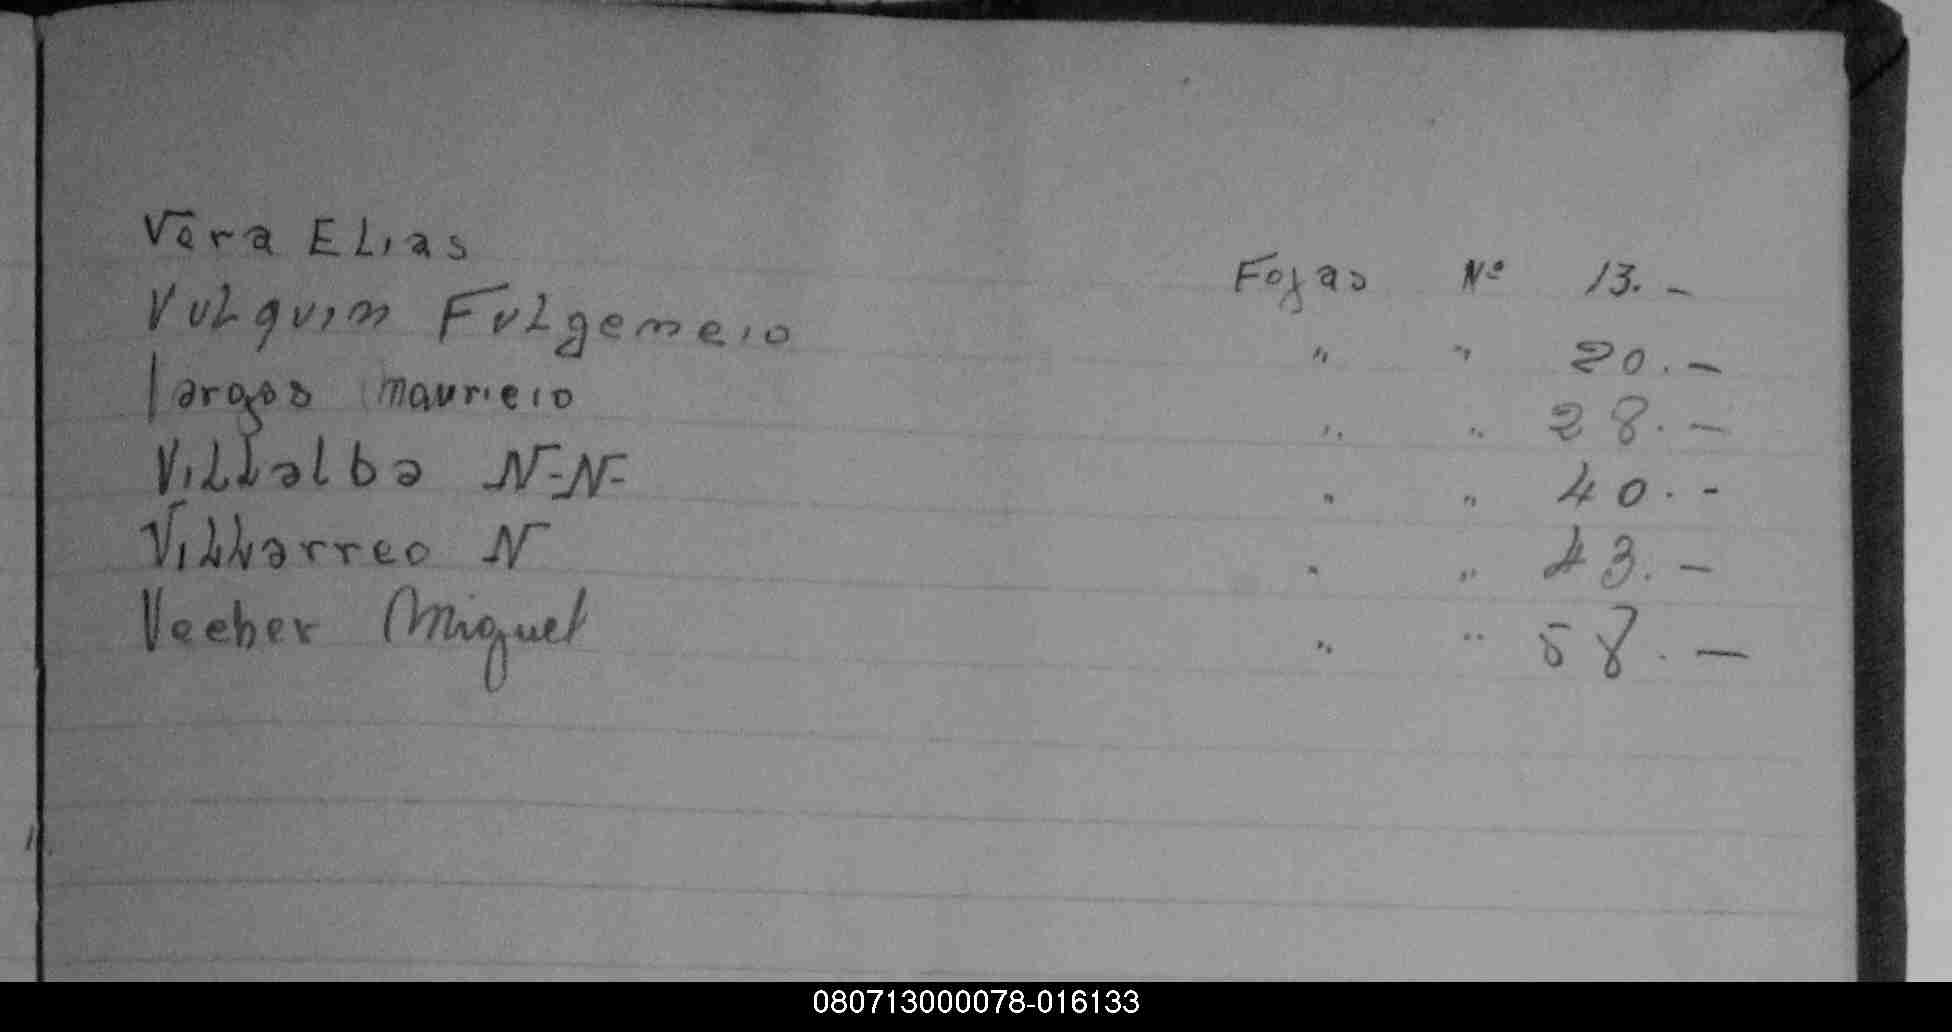 Vera ELias Fojas Nº 13.-
VuLquin FuLgencio " " 20.-
Vargas mauricio " " 28.-
ViLLalba N-N- " " 40.-
ViLLarreo N " " 43.-
Vecher Miguel " " 58.-
080713000078-016133